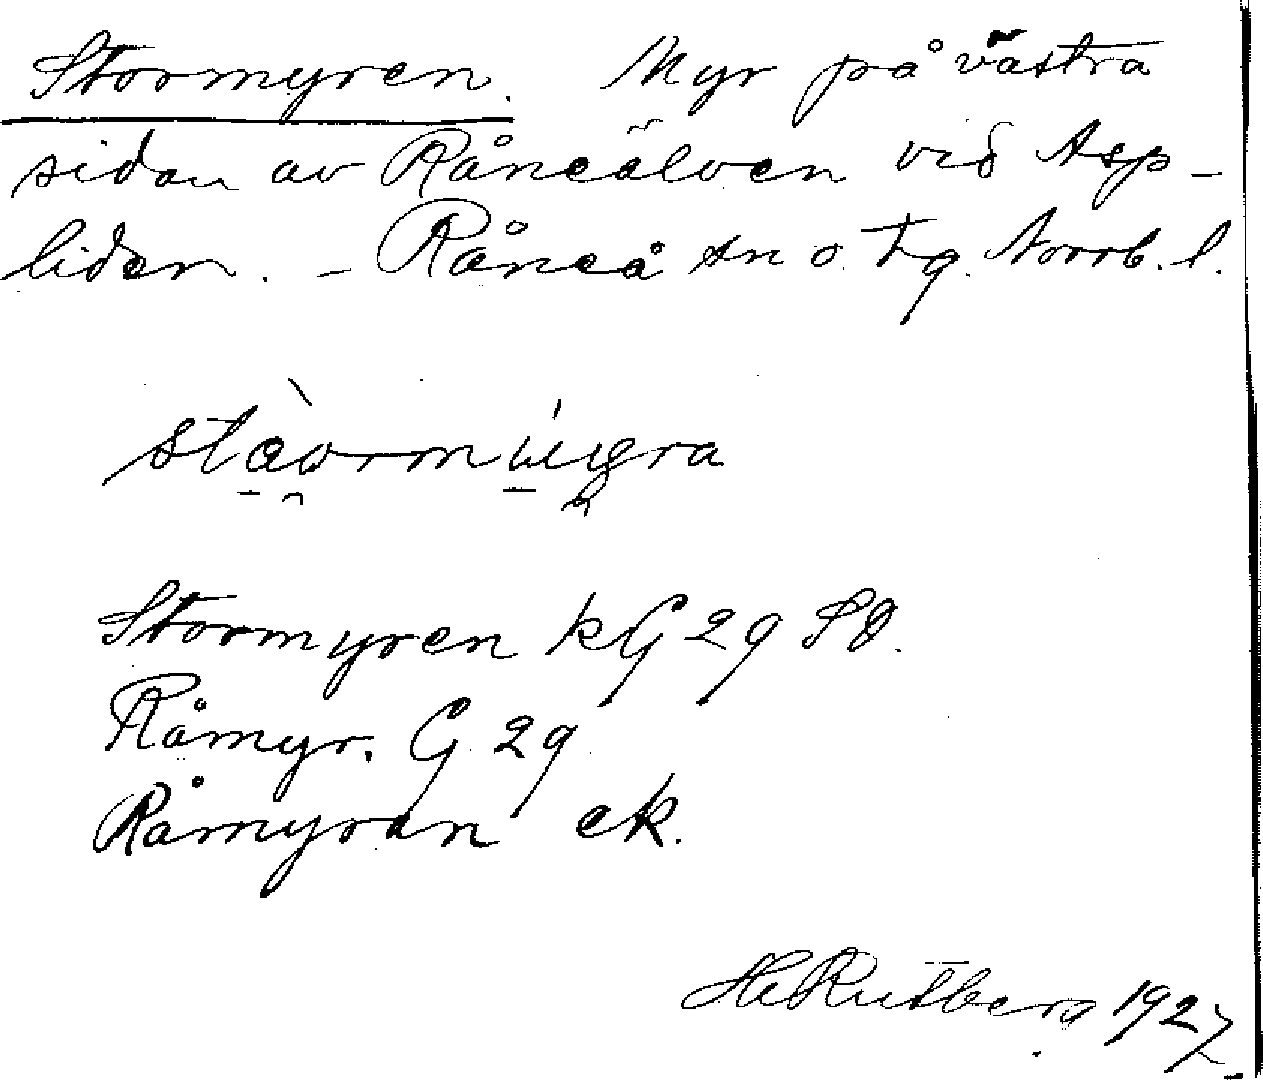 Stormyren. Myr på västra
sidan av Råneälven vid Asp-
liden. - Råneå sn o. tg. Norrb. l.
Stormyren kG 29 SO.
Råmyr. G 29
Råmyran ek.
H Rutberg 1927